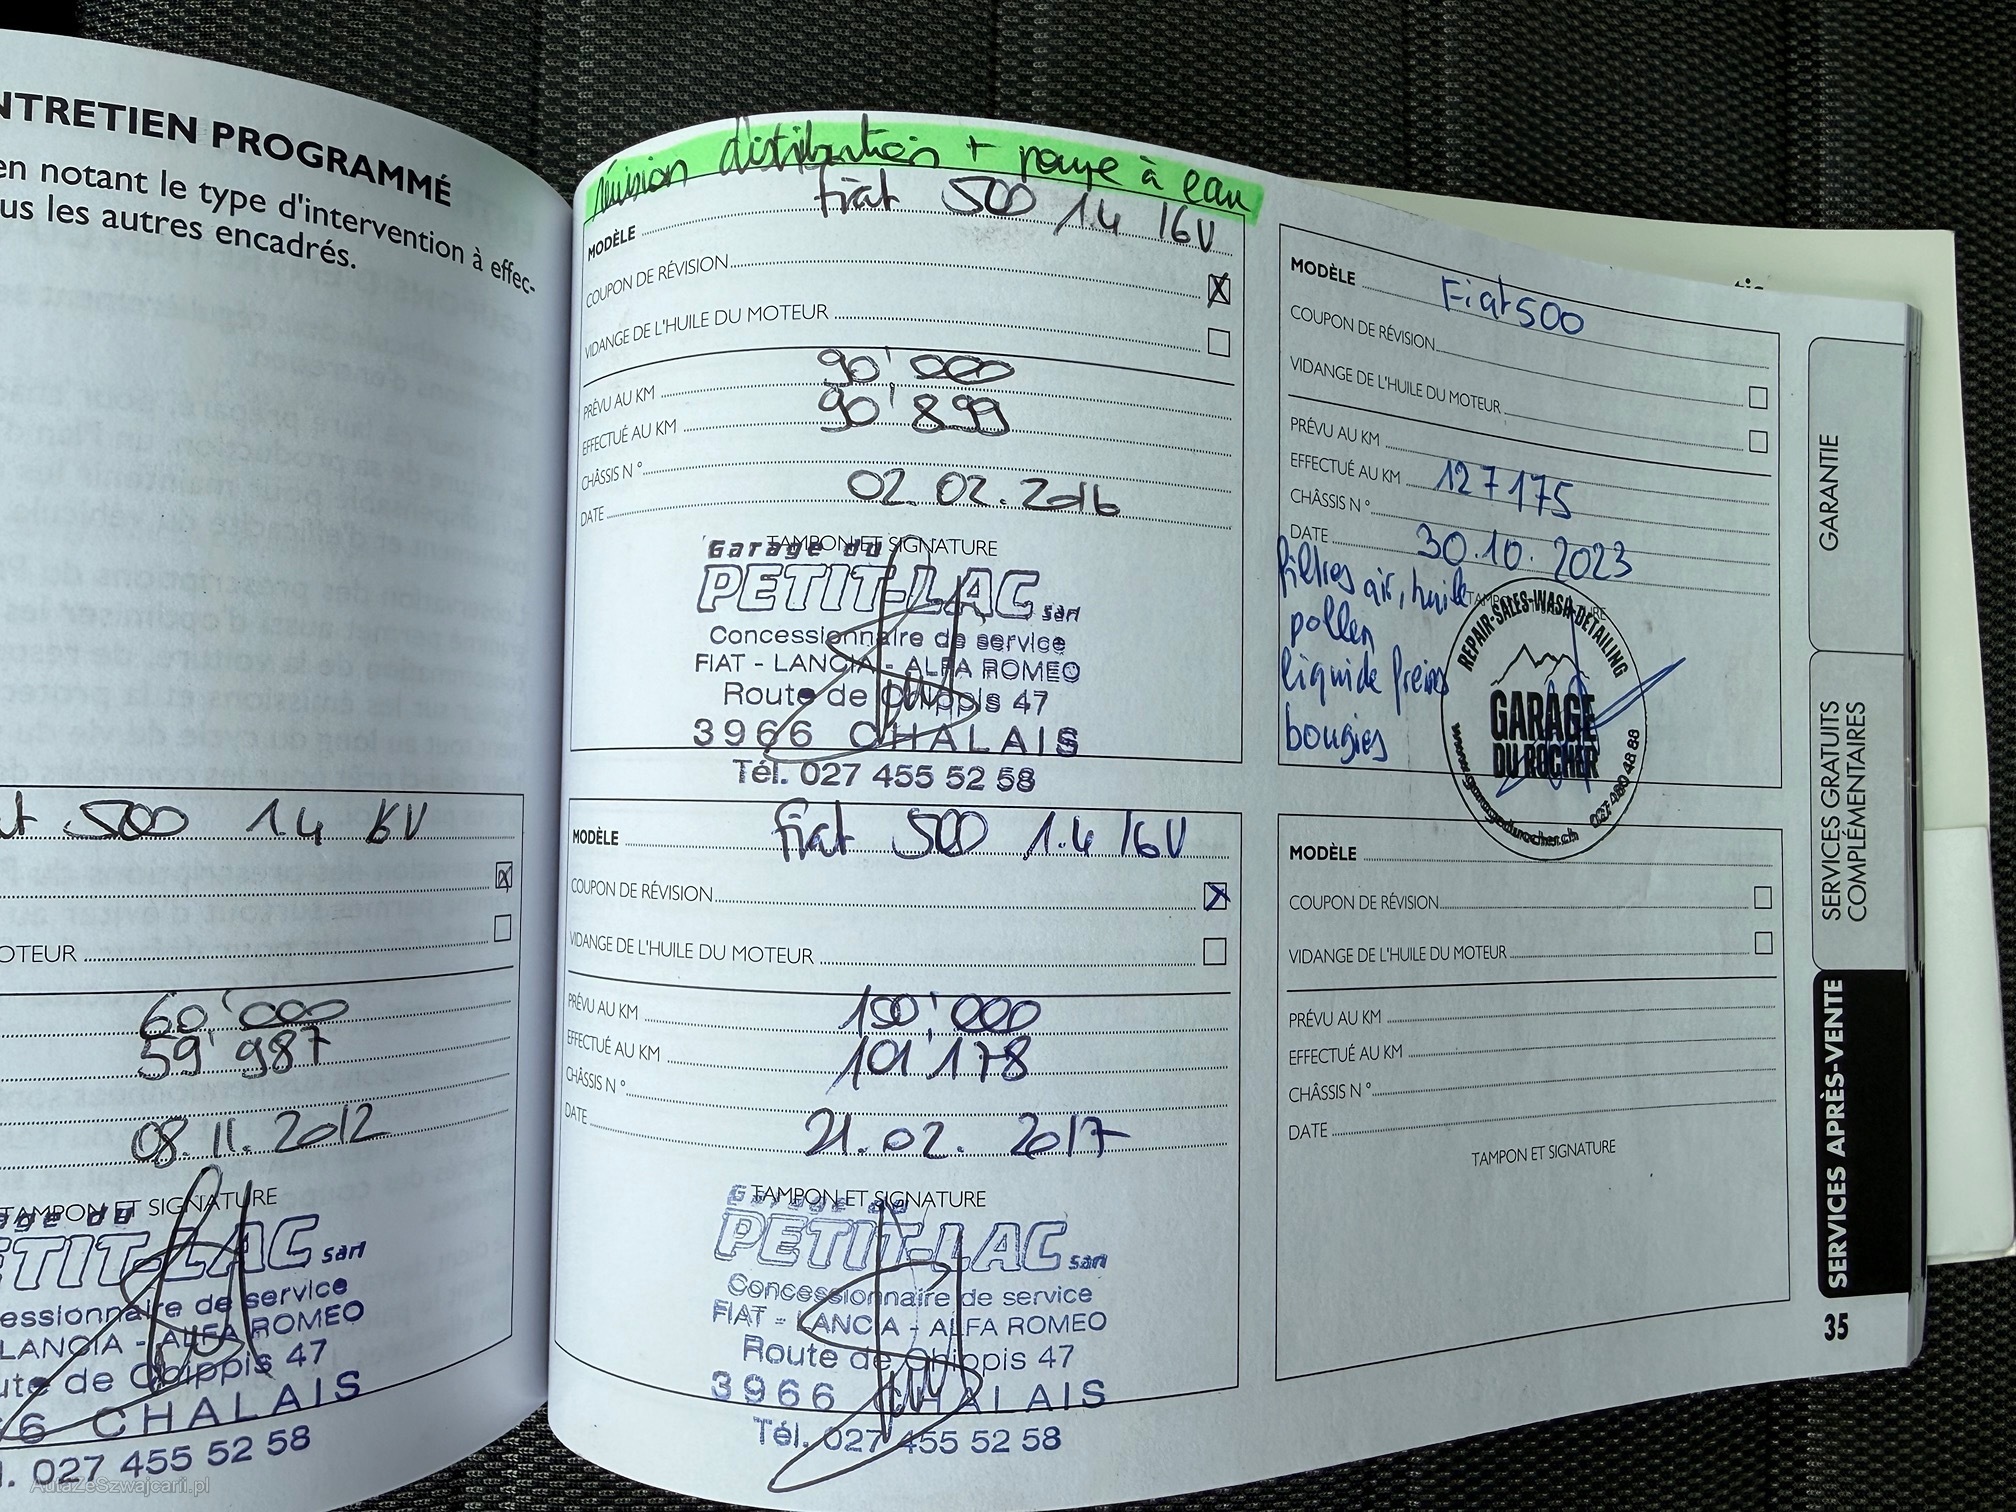 NTRETIEN PROGRAMMÉ
en notant le type d'intervention à effec-
us les autres encadrés.
500 1.4 16V
OTEUR
60'000
59'987
08.11.2012
TAMPON ET SIGNATURE
ge du
ETIT-LAC sarl
essionnaire de service
LANCIA - ALFA ROMEO
ute de Chippis 47
66 CHALAIS
l. 027 455 52 58
révision distribution + pompe à eau
MODÈLE fiat 500 1.4 16V
COUPON DE RÉVISION X
VIDANGE DE L'HUILE DU MOTEUR
PRÉVU AU KM 90'000
EFFECTUÉ AU KM 90'899
CHÂSSIS N°
DATE 02.02.2016
TAMPON ET SIGNATURE
Garage du
PETIT-LAC sarl
Concessionnaire de service
FIAT - LANCIA - ALFA ROMEO
Route de Chippis 47
3966 CHALAIS
Tél. 027 455 52 58
MODÈLE fiat 500 1.4 16V
COUPON DE RÉVISION X
VIDANGE DE L'HUILE DU MOTEUR
PRÉVU AU KM 100'000
EFFECTUÉ AU KM 101'178
CHÂSSIS N°
DATE 21.02.2017
TAMPON ET SIGNATURE
Garage du
PETIT-LAC sarl
Concessionnaire de service
FIAT - LANCIA - ALFA ROMEO
Route de Chippis 47
3966 CHALAIS
Tél. 027 455 52 58
MODÈLE Fiat 500
COUPON DE RÉVISION
VIDANGE DE L'HUILE DU MOTEUR
PRÉVU AU KM
EFFECTUÉ AU KM 127175
CHÂSSIS N°
DATE 30.10.2023
filtres air, huile
pollen
liquide freins
bougies
REPAIR-SALES-WASH-DETAILING
GARAGE
DU ROCHER
www.garagedurocher.ch
MODÈLE
COUPON DE RÉVISION
VIDANGE DE L'HUILE DU MOTEUR
PRÉVU AU KM
EFFECTUÉ AU KM
CHÂSSIS N°
DATE
TAMPON ET SIGNATURE
GARANTIE
SERVICES GRATUITS
COMPLÉMENTAIRES
SERVICES APRÈS-VENTE
35
AutaZeSzwajcarii.pl